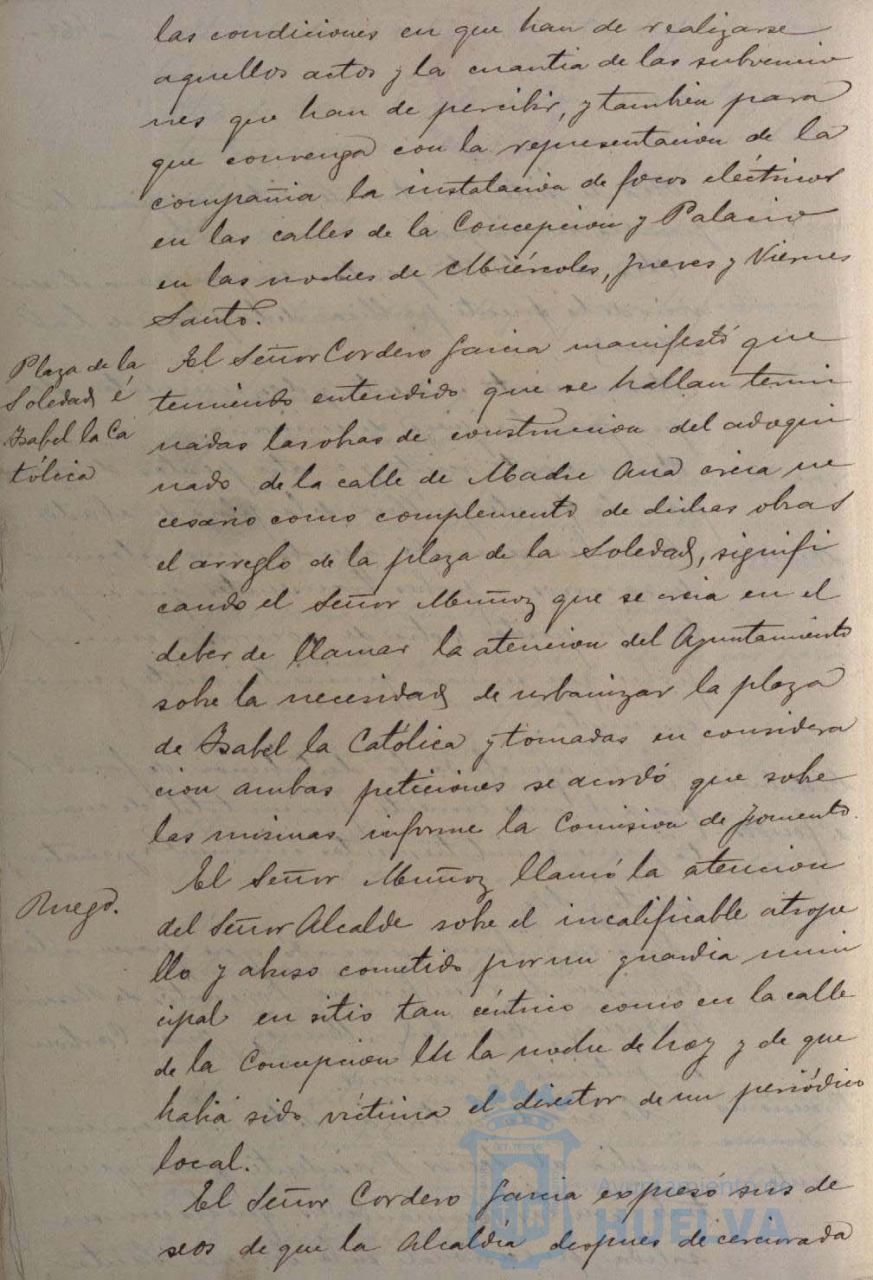 las condiciones en que han de realizarse
aquellos actos y la cuantia de las subvencio
nes que han de percibir, y tambien para
que convenga con la representacion de la
compañia la instalación de focos eléctricos
en las calles de la Concepcion y Palacio
en las noches de Miércoles, Jueves y Viernes
Santo.
Plaza de la
Soledad é
Isabel la Ca
tólica
El Señor Cordero Garcia manifestó que
teniendo entendido que se hallan termi
nadas las obras de construccion del adoqui
nado de la calle de Madre Ana creia ne
cesario como complemento de dichas obras
el arreglo de la plaza de la Soledad, signifi
cando el Señor Muñoz que se creia en el
deber de llamar la atencion del Ayuntamiento
sobre la necesidad de urbanizar la plaza
de Isabel la Católica y tomadas en considera
cion ambas peticiones se acordó que sobre
las mismas informe la Comision de fomento.
Ruego.
El Señor Muñoz llamó la atencion
del Señor Alcalde sobre el incalificable atrope
llo y abuso cometido por un guardia muni
cipal en sitio tan céntrico como en la calle
de la Concepcion en la noche de hoy y de que
habia sido víctima el director de un periódico
local.
El Señor Cordero Garcia expresó sus de
seos de que la Alcaldía despues de cerciorada
Ayuntamiento de
HUELVA